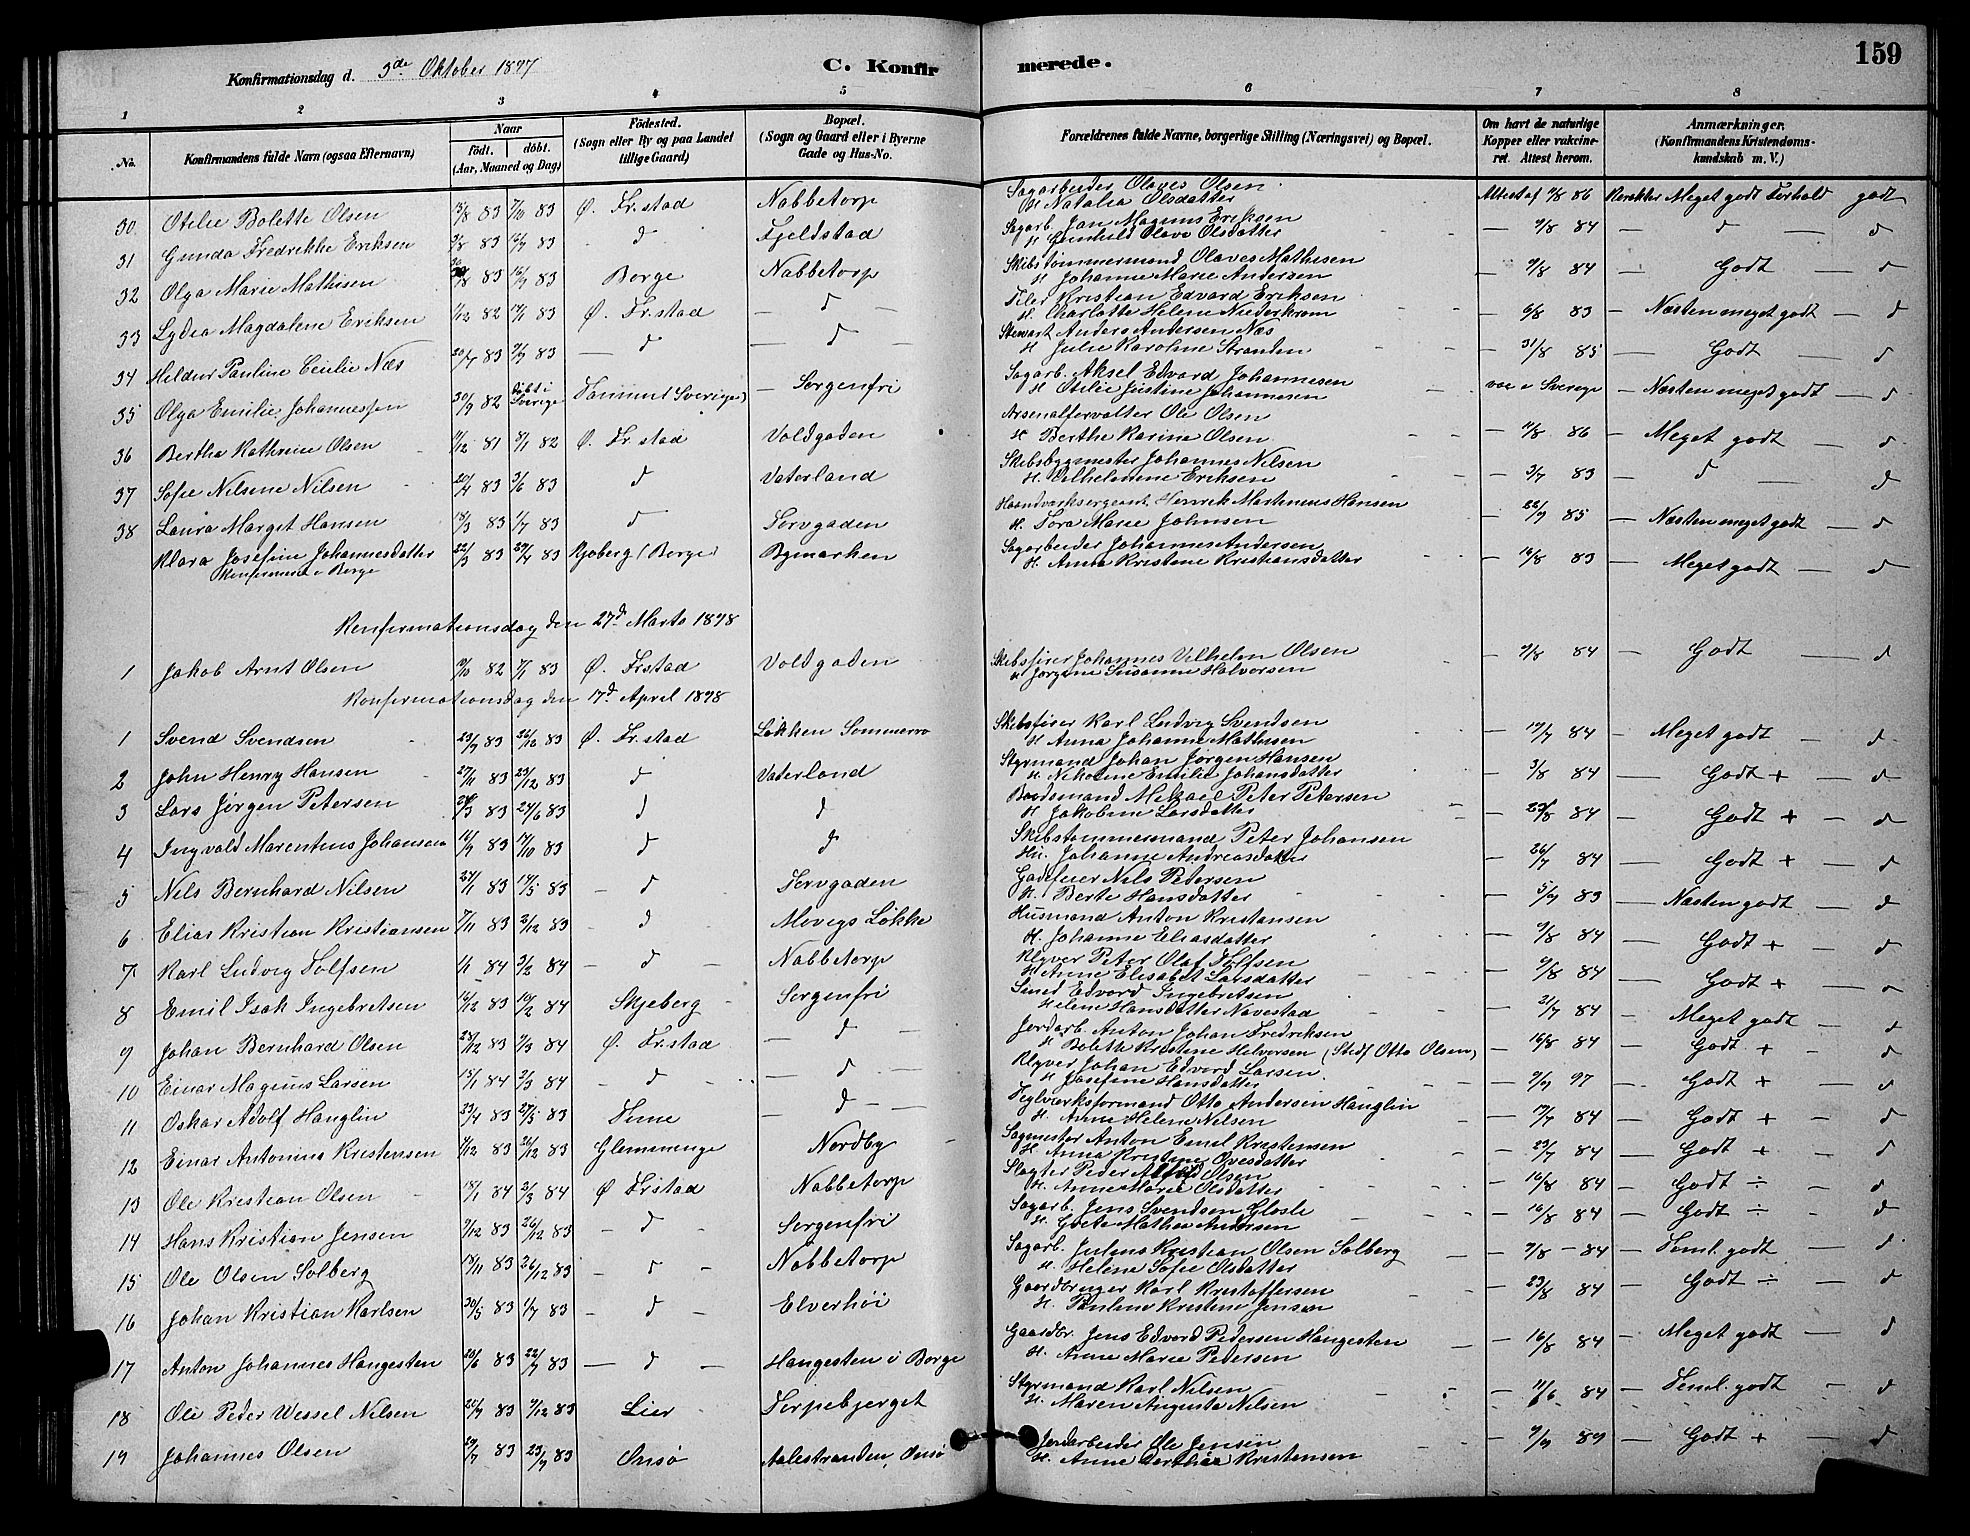 Konfirmationsdag d. 3de Oktober 1897 C. Konfirmerede. 159
1 2 3 4 5 6 7 8
No. Konfirmandens fulde Navn (ogsaa Efternavn) Naar født. døbt. (Aar, Maaned og Dag) Fødested. (Sogn eller By og paa Landet tillige Gaard) Bopæl. (Sogn og Gaard eller i Byerne Gade og Hus-No. Forældrenes fulde Navne, borgerlige Stilling (Næringsvei) og Bopæl. Om havt de naturlige Kopper eller vakcineret. Attest herom. Anmærkninger. (Konfirmandens Kristendomskundskab m. V.)
30 Otilie Bolette Olsen 83 7/10 83 Ø. Fr.stad Nabbetorp Sagarbeider Olaves Olsen H. Natalia Olsdatter Attest af 9/8 86 Meget godt Forhold godt
31 Gunda Fredrikke Eriksen 83 83 d Fjeldstad Sagarb. Jan Magnus Eriksen H. Gunhild Olave Olsdatter 9/8 84 d d
32 Olga Marie Mathisen 83 16/9 83 Borge Nabbetorp Skibstømmermand Olaves Mathisen H. Johanne Marie Andersen 9/8 84 Godt d
33 Lydia Magdalene Eriksen 1/12 82 83 Ø. Fr.stad d Filer Kristian Edvard Eriksen H. Charlotte Helene Niederkrom 6/8 83 Næsten meget godt d
34 Hildur Pauline Cecilie Næs 20/7 83 83 d d Stewart Anders Andersen Næs H. Julie Karoline Stranden 31/8 85 Godt d
35 Olga Emilie Johannessen 30/9 82 døbt i Sverige Tanum (Sverige) Sorgenfri Sagarb. Aksel Edvard Johannesen H. Otilie Justine Johannesen vac i Sverige Næsten meget godt d
36 Bertha Kathrine Olsen 81 8/1 82 Ø. Fr.stad Voldgaden Arsenalforvalter Ole Olsen H. Berthe Karine Olsen 9/8 86 Meget godt d
37 Sofie Nilsine Nilsen 20/4 83 3/6 83 d Vaterland Skibsbygmester Johannes Nilsen H. Vilhelmine Eriksen 3/7 83 d d
38 Laura Marget Hansen 18/3 83 1/7 83 d Torvgaden Haandværksergeant Henrik Martinius Hansen H. Tora Marie Johnsen 22/9 85 Næsten meget godt d
Klara Josefine Johannesdatter Konfirmeret i Borge 22/3 83 29/4 83 Kjøberg (Borge) Bymarken Sagarbeider Johannes Andersen H. Anna Kristine Kristiansdatter 16/8 83 Meget godt d
Konfirmationsdag den 27d Marts 1898
1 Jakob Arnt Olsen 19/10 82 7/1 83 Ø. Fr.stad Voldgaden Skibsfører Johannes Vilhelm Olsen H. Jørgine Susanne Halvorsen 9/8 84 Godt d
Konfirmationsdag den 17d April 1898
1 Svend Svendsen 23/9 83 26/12 83 Ø. Fr.stad Løkken Sommerro Skibsfører Karl Ludvig Svendsen H. Anna Johanne Mathisen 19/7 84 Meget godt d
2 John Henry Hansen 27/11 83 23/12 83 d Vaterland Styrmand Johan Jørgen Hansen H. Nikoline Emilie Johansdatter 3/8 84 Godt + d
3 Lars Jørgen Petersen 83 24/6 83 d d Baadsmand Mikael Peter Petersen H. Jakobine Larsdatter 23/8 84 Godt + d
4 Ingvald Marentius Johansen 16/9 83 14/10 83 d d Skibstømmermand Peter Johansen Hu. Johanne Andreasdatter 26/7 84 Godt + d
5 Nils Bernhard Nilsen 27/1 83 14/5 83 d Torvgaden Gadefeier Nils Petersen H. Berte Hansdatter 5/9 83 Næsten godt d
6 Elias Kristian Kristiansen 7/11 83 2/12 83 d Movigs Løkke Husmand Anton Kristansen H. Johanne Eliasdatter 9/8 84 Godt + d
7 Karl Ludvig Tolfsen 1/1 84 3/2 84 d Nabbetorp Klyver Peter Olaf Tolfsen H. Anne Elisabet Larsdatter 9/8 84 Godt + d
8 Emil Isak Ingebretsen 16/12 83 10/2 84 Skjeberg Sorgenfri Smed Edvard Ingebretsen Helene Hansdatter Navestad 21/7 84 Meget godt d
9 Johan Bernhard Olsen 23/12 83 84 Ø. Fr.stad d Jordarb. Anton Johan Fredriksen H. Bolette Kristine Helversen (Stedf. Otto Olsen) 16/8 84 Godt + d
10 Einar Magnus Larsen 15/1 84 2/3 84 d d Klyver Johan Edvard Larsen H. Josefine Hansdatter 9/9 97 Godt + d
11 Oskar Adolf Hanglin 23/4 83 27/5 83 Tune d Teglverksformand Otto Andersen Hanglin H. Anne Helene Nilsen 19/7 84 Godt + d
12 Einar Antonius Kristensen 7/12 83 26/12 83 Glemminge Nordby Sagmester Anton Emil Kristensen H. Anna Kristine Ovesdatter 23/7 84 Godt + d
13 Ole Kristian Olsen 18/1 84 2/3 84 Ø Fr.stad Nabbetorp Slagter Peder Olsen H. Anne Marie Olsdatter 16/8 84 Godt ÷ d
14 Hans Kristian Jensen 9/12 83 26/12 83 d Sorgenfri Sagarb. Jens Svendsen Glosli H. Grete Mathea Andersen 16/8 84 Godt ÷ d
15 Ole Olsen Solberg 19/11 83 26/12 83 d Nabbetorp Sagarb. Julius Kristian Olsen Solberg H. Helene Sofie Olsdatter 9/8 84 Teml. godt d
16 Johan Kristian Karlsen 30/5 83 1/7 83 d Elverhøi Gaardbruger Karl Kristoffersen H. Pauline Kristine Jensen 23/8 84 Godt ÷ d
17 Anton Johannes Hangesten 20/6 83 22/7 83 d Hangesten i Borge Gaardbr. Jens Edvard Pedersen Hangesten H. Anne Marie Pedersen 16/8 84 Meget godt d
18 Ole Peder Wessel Nilsen 20/9 83 9/12 83 Lier Torpebjerget Styrmand Karl Nilsen H. Maren Augusta Nilsen 11/6 84 Teml. godt d
19 Johannes Olsen 29/7 83 23/9 83 Onsø Aalestranden, Onsø Jordarbeider Ole Jensen H. Anne Dorthea Kristensen 9/9 89 Godt + d